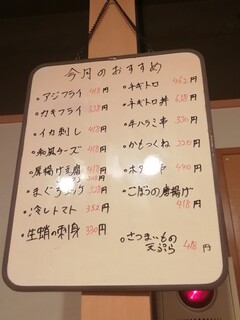 今月のおすすめ
・アジフライ 418円
・カキフライ 528円
・イカ刺し 418円
・和風チーズ 418円
・厚揚げ豆腐 418円
528円
・冷しトマト 352円
・生蛸の刺身 330円
・ネギトロ 462円
・ネギトロ丼 638円
・牛ハラミ串 330円
・かもつくね 220円
440円
・ごぼうの唐揚げ
418円
・さつまいもの
天ぷら 418円